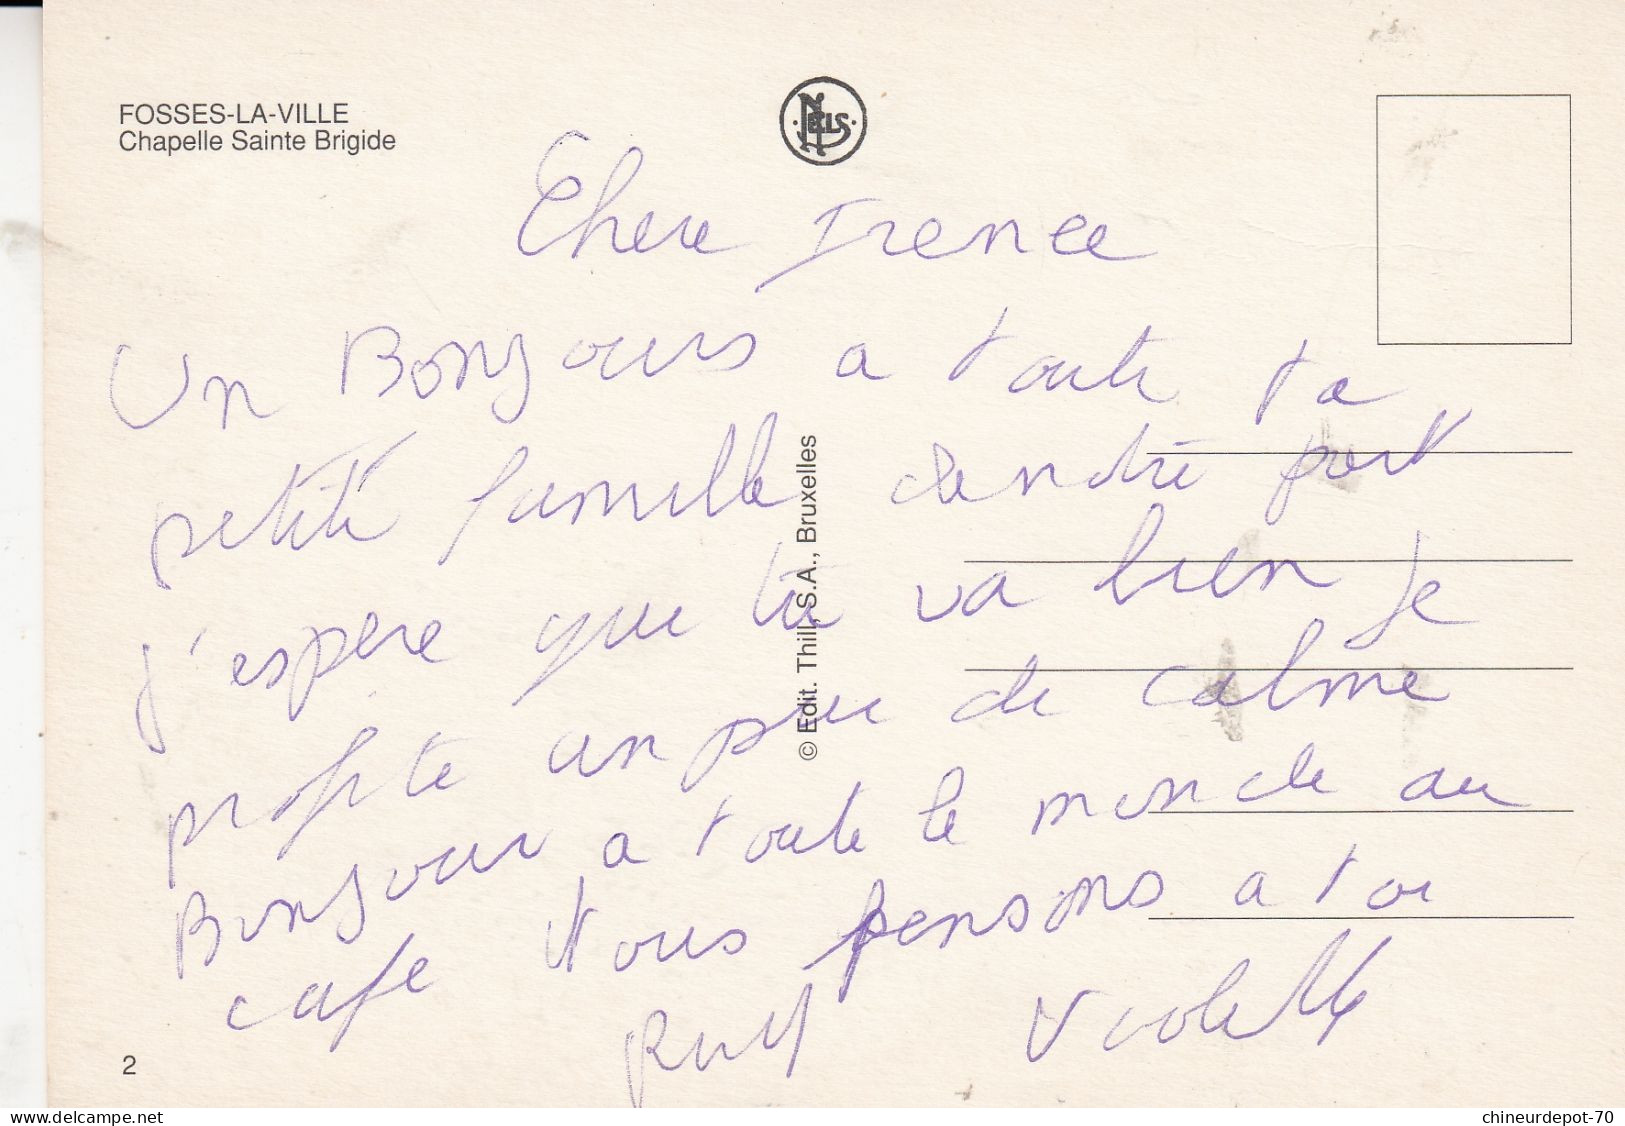 FOSSES-LA-VILLE
Chapelle Sainte Brigide
NELS
Chere Irenee
Un Bonjours a toute ta
petite famille
j'espere que tu va bien Je
profite un peu de calme
Bonjour a toute le monde au
cafe Nous pensons a toi
Violette
© Edit. Thill, S.A., Bruxelles
2
delcampe.net
chineurdepot-70